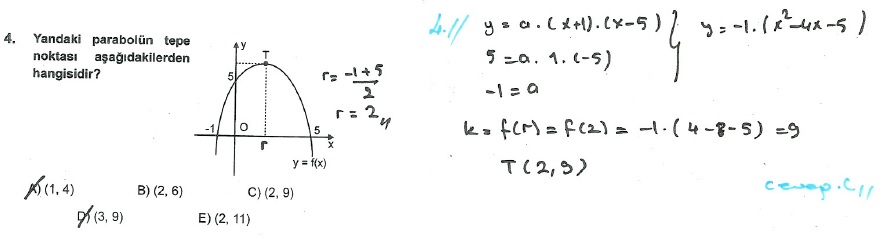 4. Yandaki parabolün tepe
noktası aşağıdakilerden
hangisidir?
y
T
5
-1
O
r
5
x
y = f(x)
r = (-1+5)/2
r = 2//
A) (1, 4) B) (2, 6) C) (2, 9)
D) (3, 9) E) (2, 11)
4.//
y = a . (x+1) . (x-5) } y = -1 . (x²-4x-5)
5 = a . 1 . (-5)
-1 = a
k = f(r) = f(2) = -1 . (4-8-5) = 9
T (2, 9)
cevap.C//